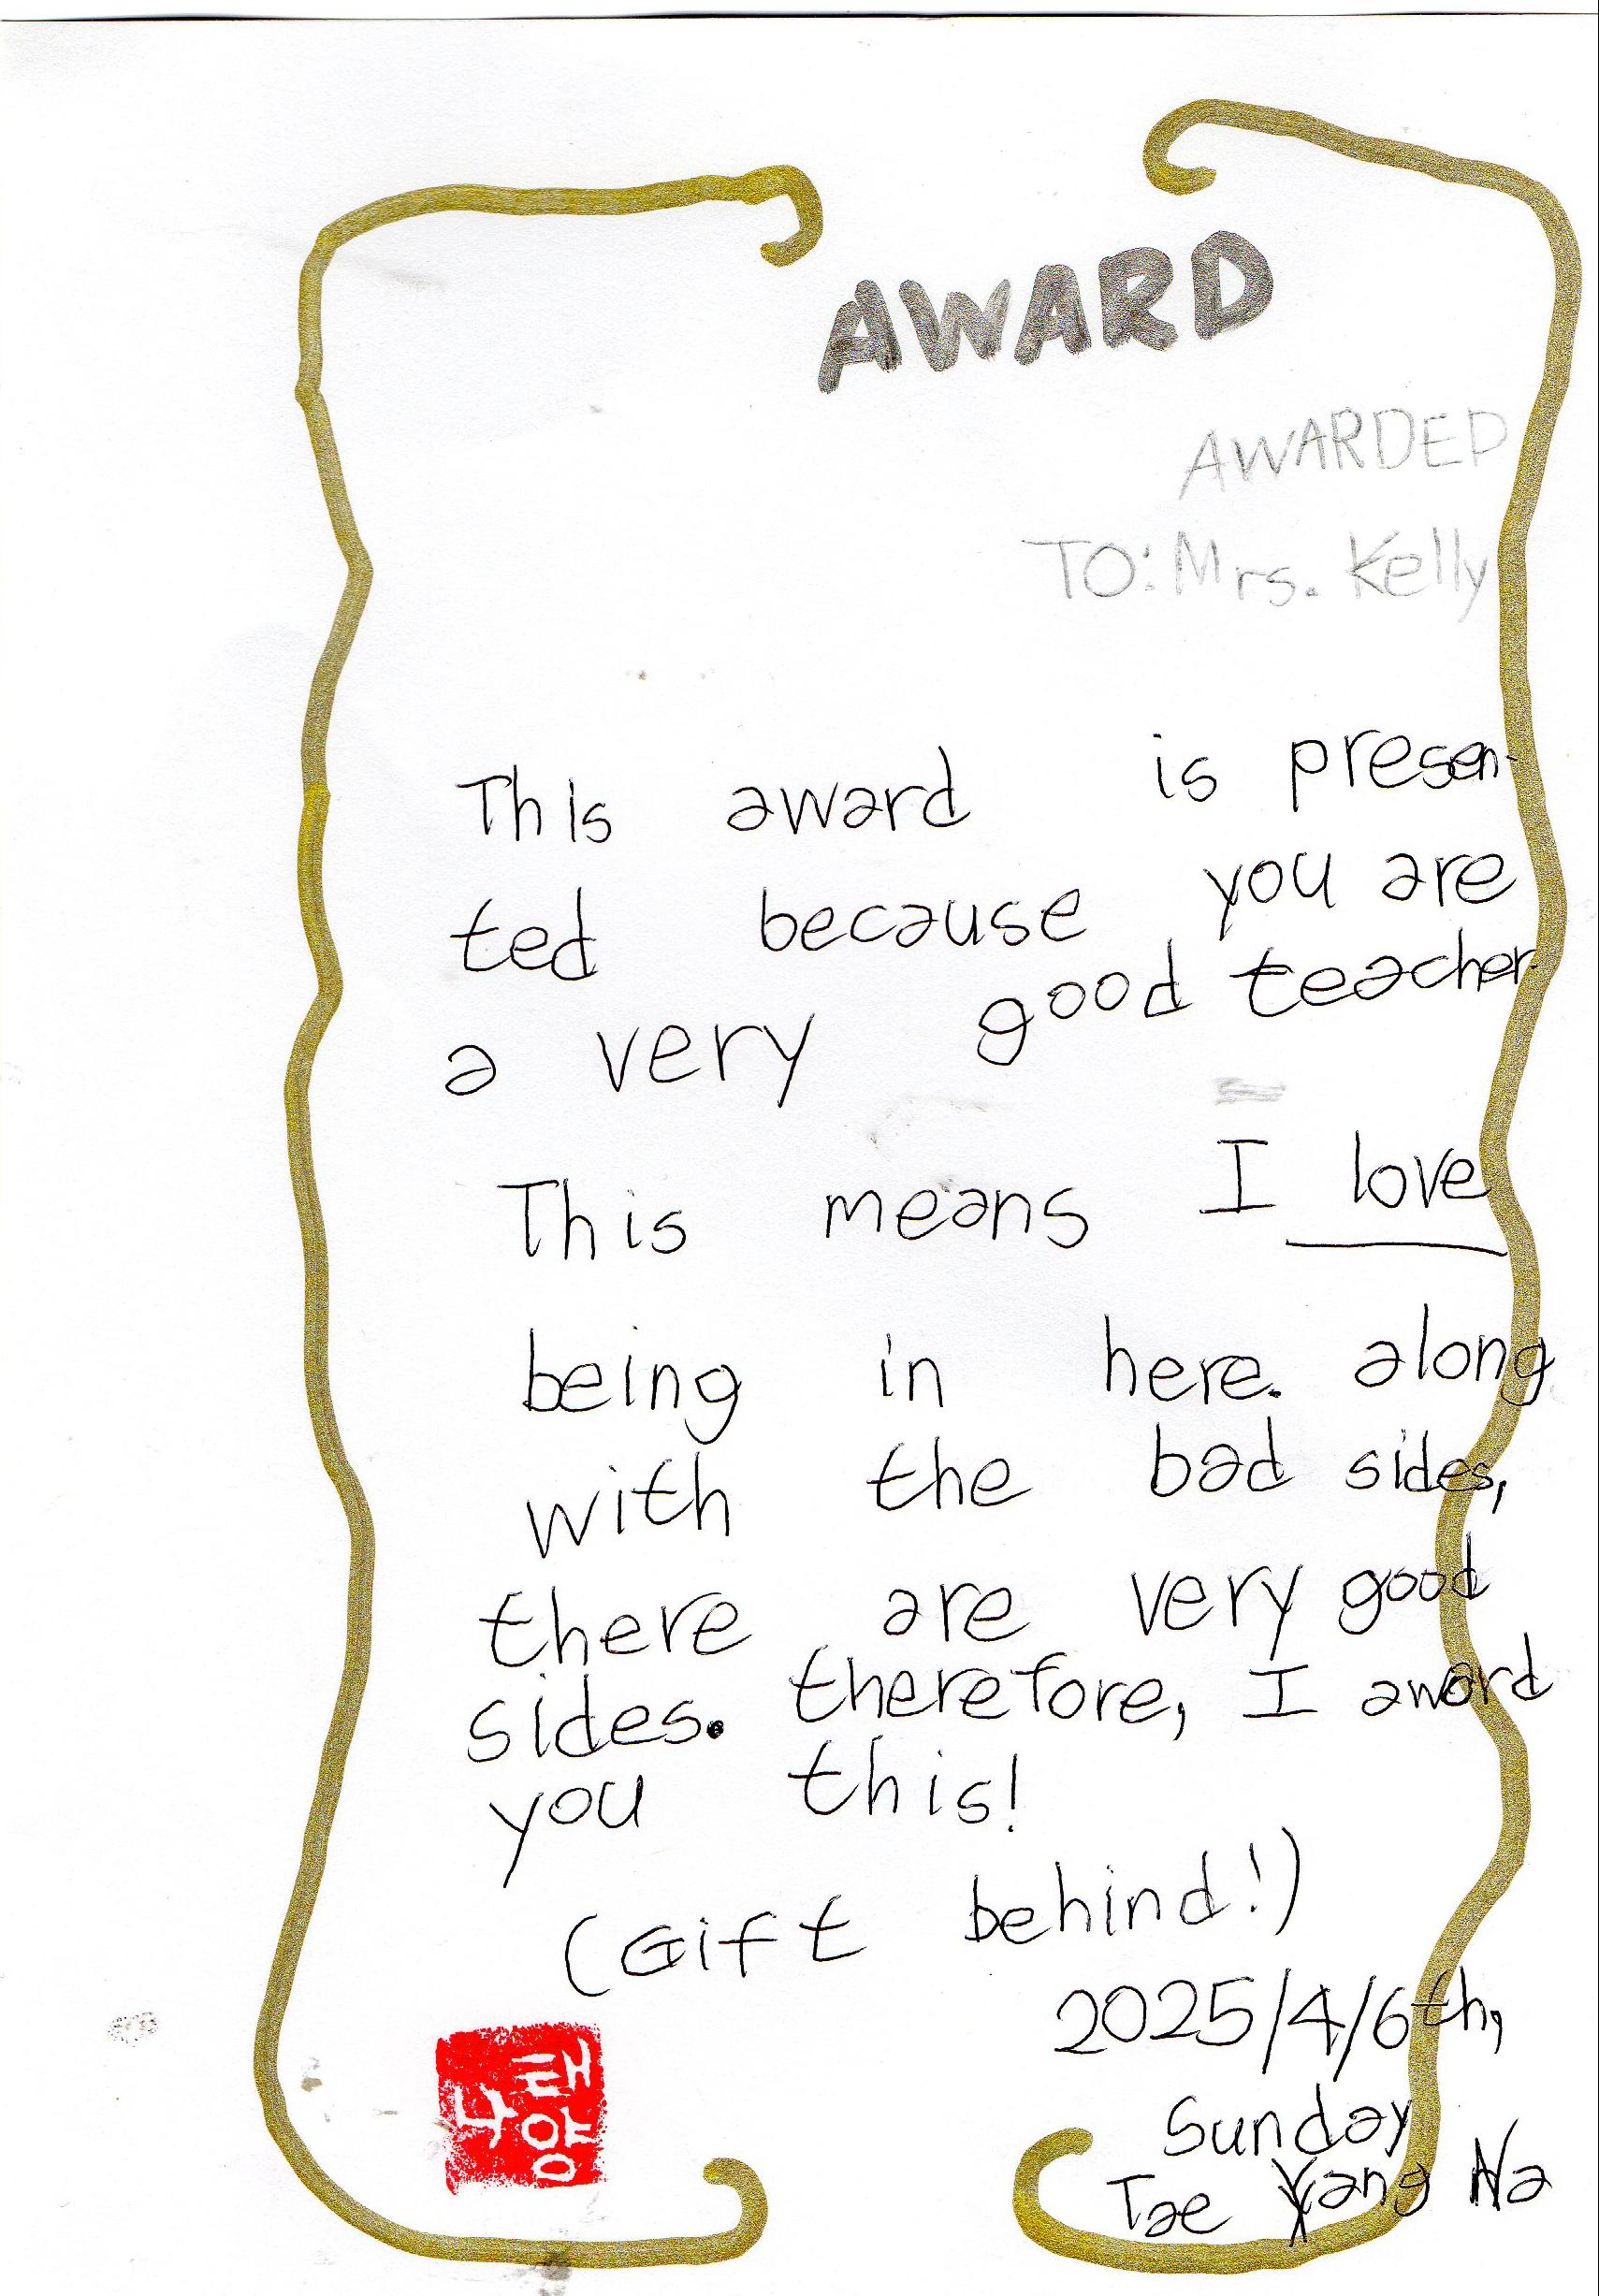 AWARD
AWARDED
TO: Mrs. Kelly
This award is presen-
ted because you are
a very good teacher.
This means I love
being in here. along
with the bad sides,
there are very good
sides. therefore, I award
you this!
(Gift behind!)
2025/4/6th,
Sunday
Tae Yang Na
나태양